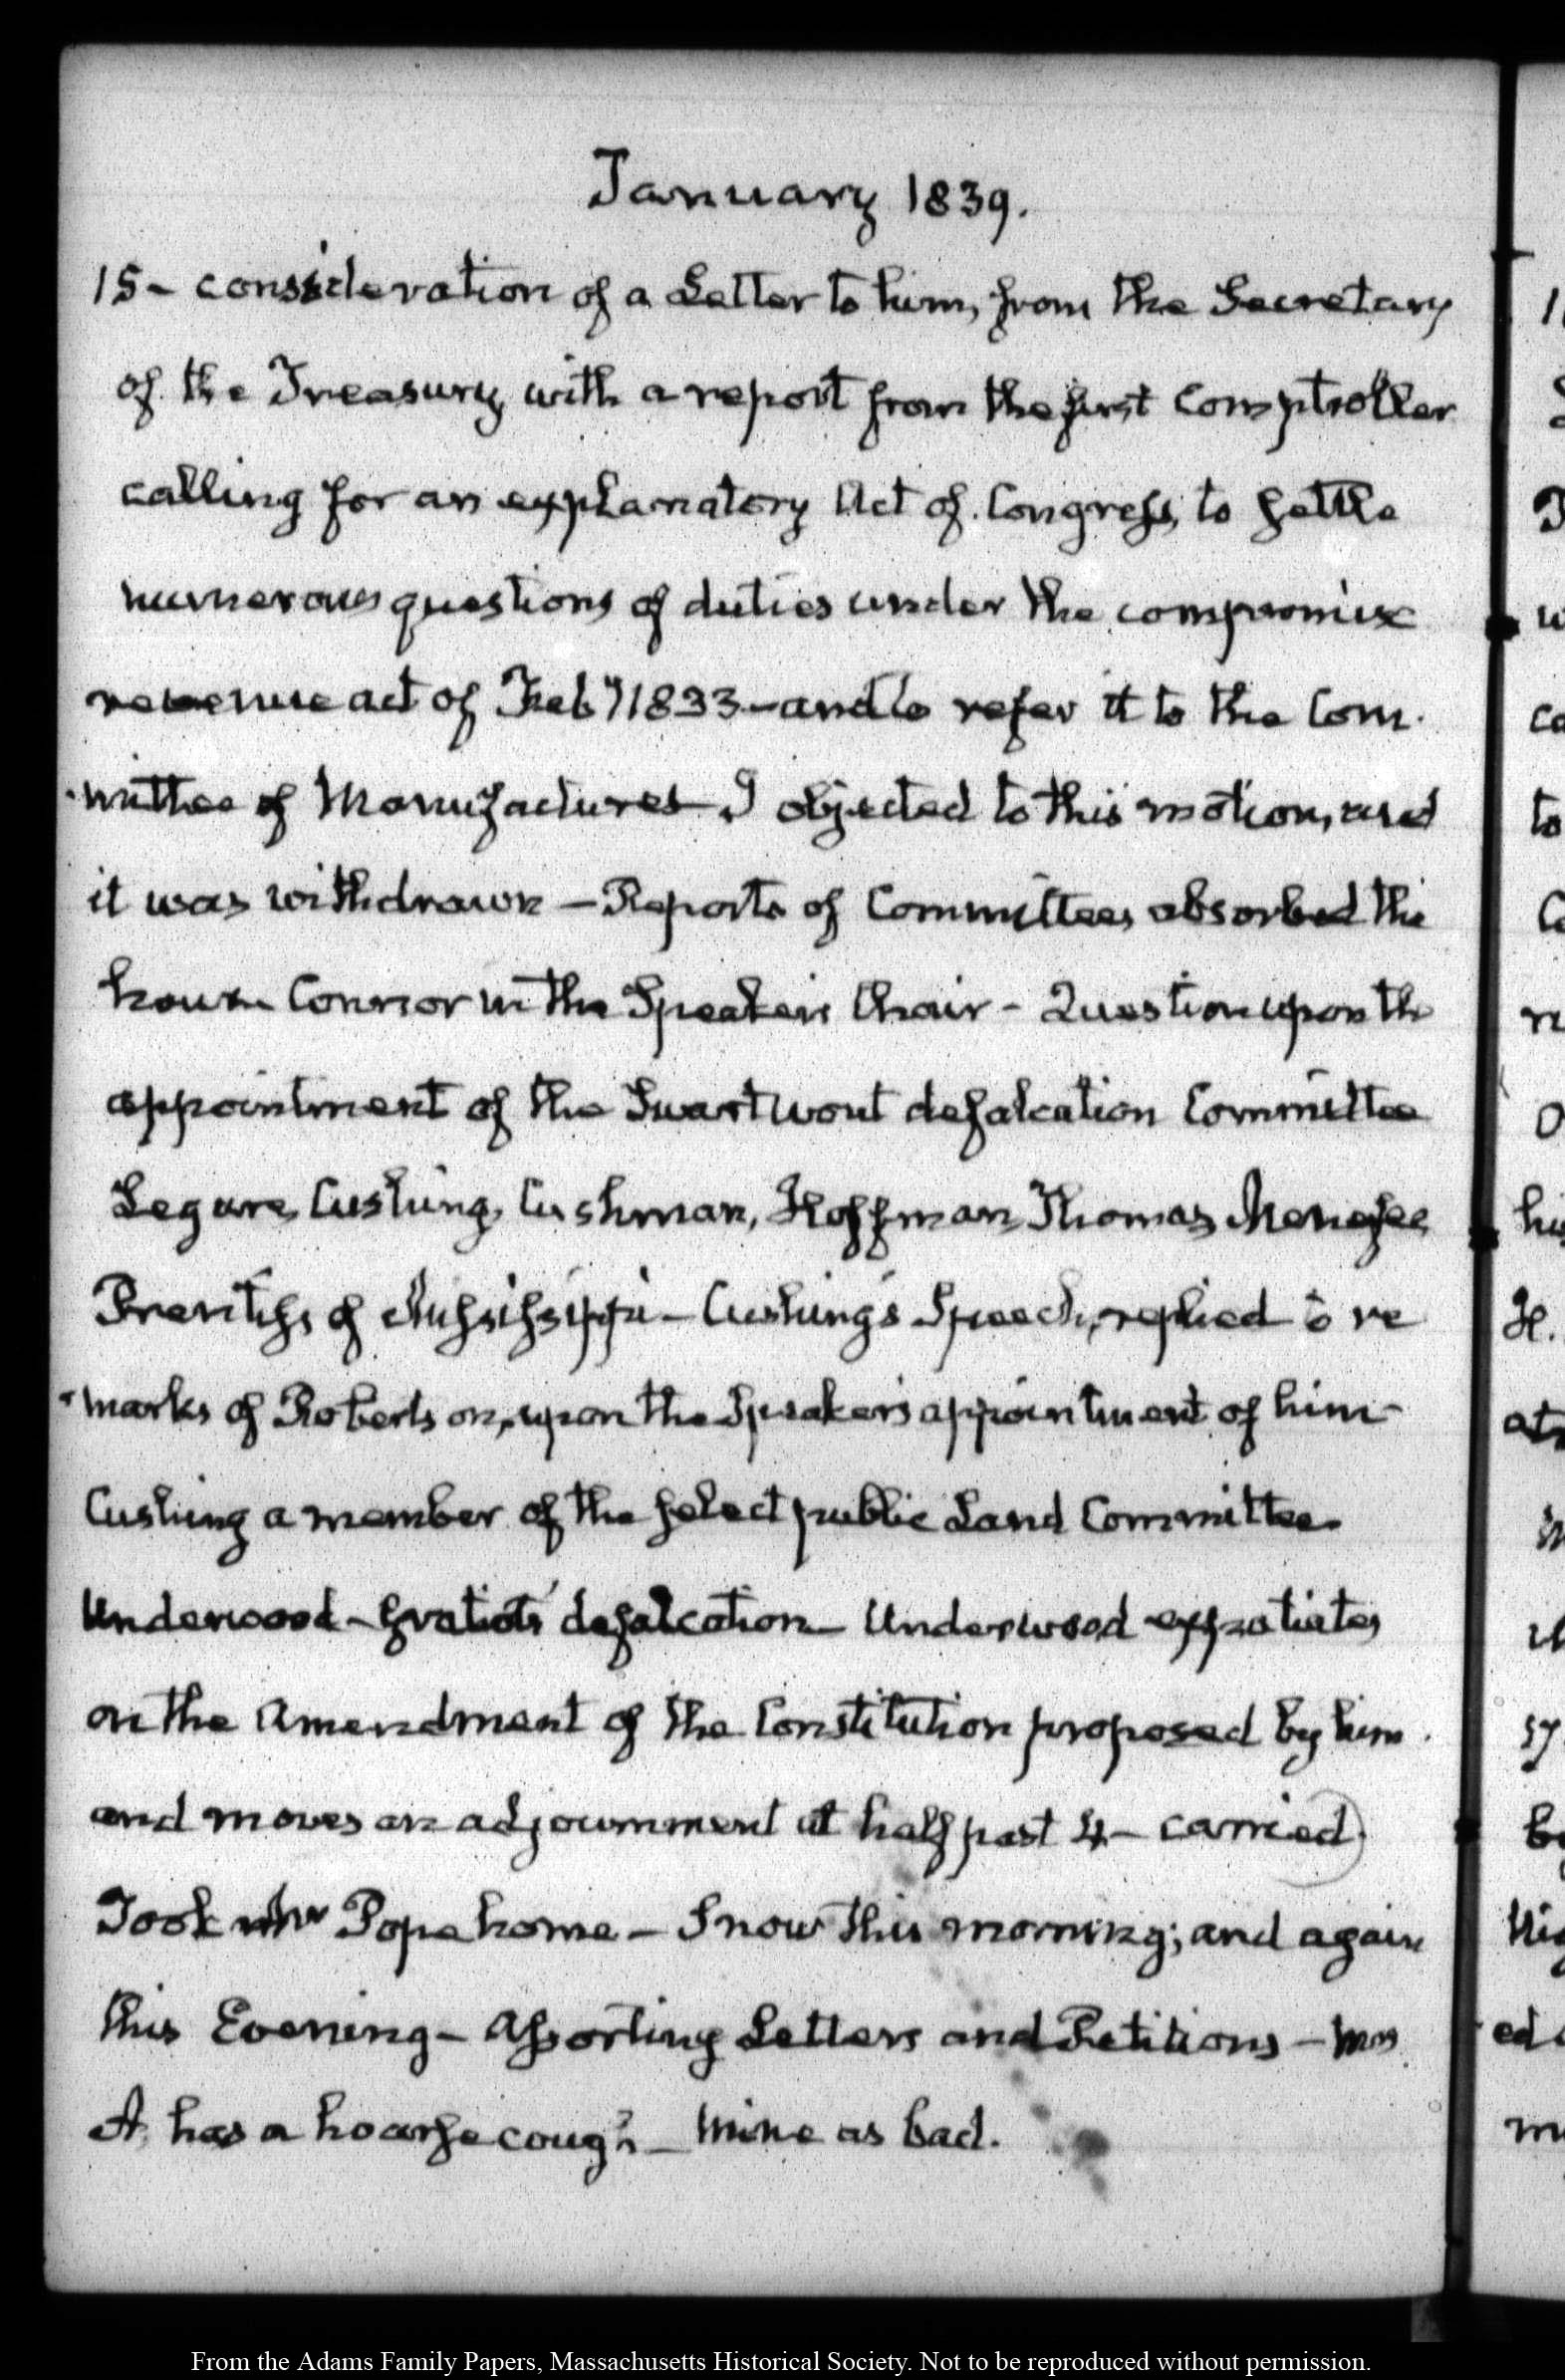 January 1839.
15- consideration of a Letter to him, from the Secretary
of the Treasury, with a report from the first Comptroller
calling for an explanatory Act of Congress, to settle
numerous questions of duties under the compromise
revenue act of Feby 1833 - and to refer it to the Com-
mittee of Manufactures - I objected to this motion, and
it was withdrawn - Reports of Committees absorbed the
hour - Connor in the Speaker's Chair - Question upon the
appointment of the Swartwout defalcation Committee
Legare, Cushing, Cushman, Hoffman, Thomas, Menefee,
Prentiss, of Mississippi - Cushing's Speech, replied to re
marks of Robertson, upon the Speaker's appointment of him-
Cushing a member of the select public Land Committee.
Underwood - Gratiot's defalcation - Underwood expatiates
on the Amendment of the Constitution proposed by him
and moves an adjournment at half past 4 - carried
Took Mr Pope home - Snow this morning; and again
this Evening - Assorting Letters and Petitions - Mrs
A. has a hoarse cough - Mine as bad.
From the Adams Family Papers, Massachusetts Historical Society. Not to be reproduced without permission.